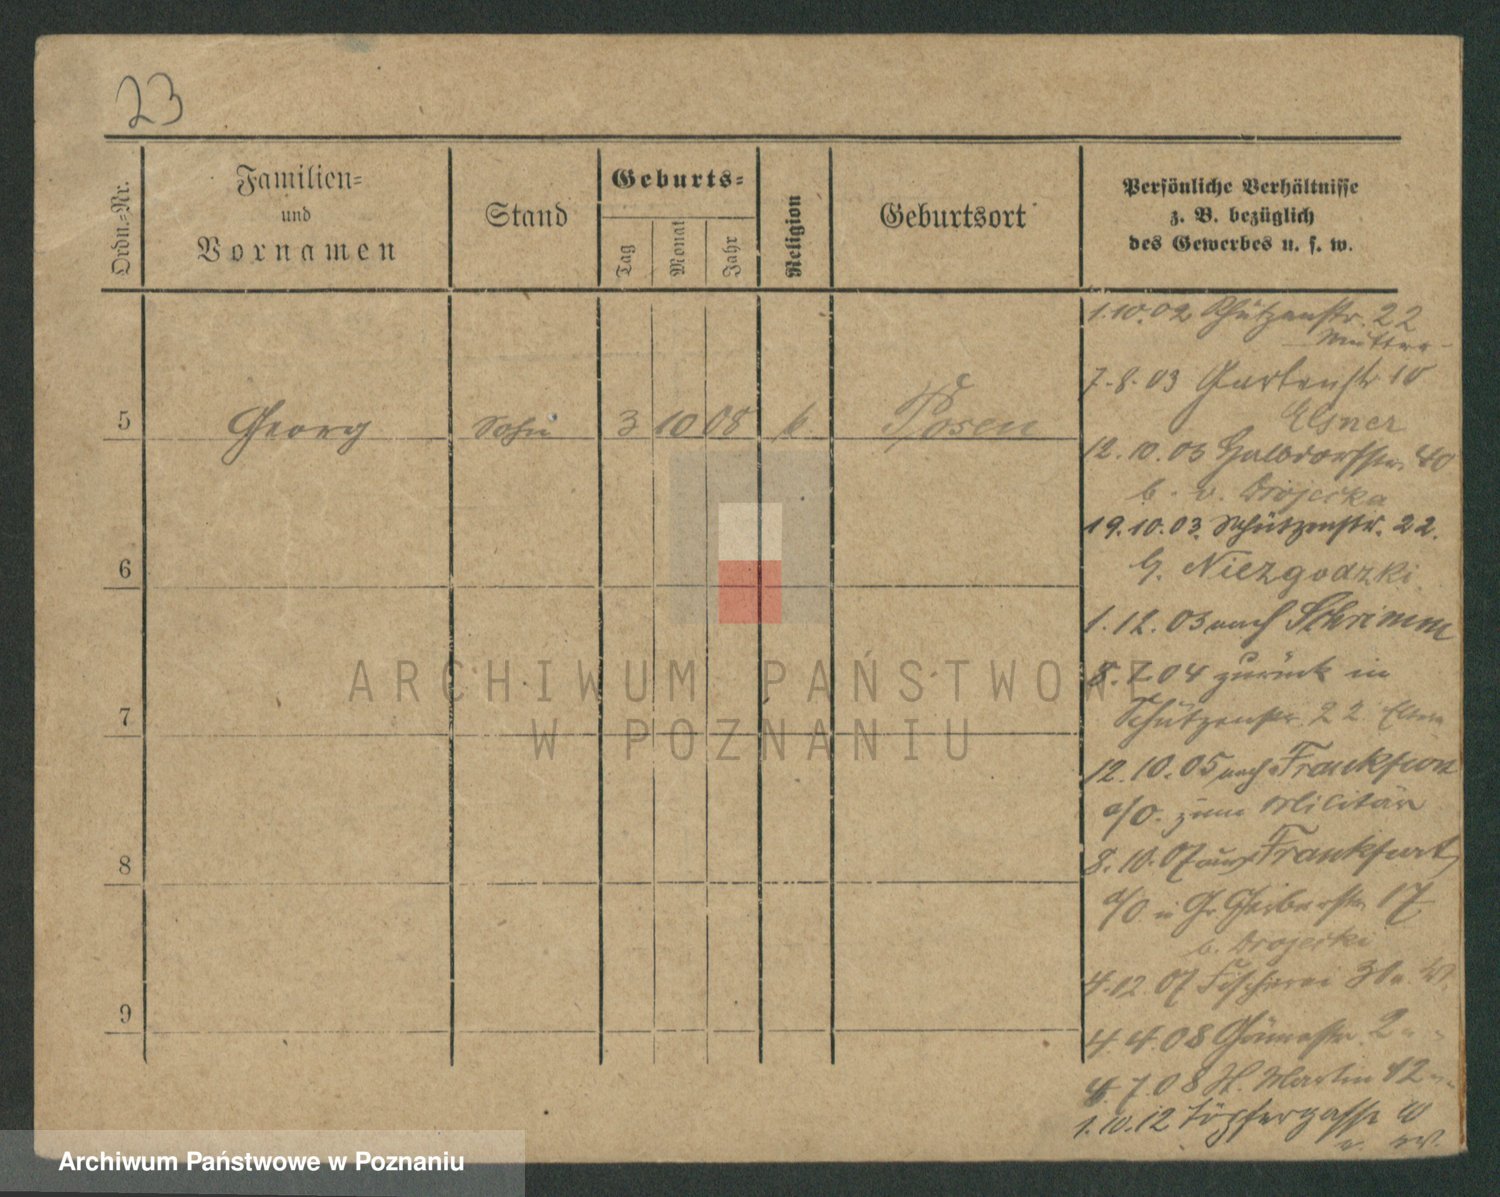 23
Ordn.-Nr.
Familien-
und
Vornamen
Stand
Geburts-
Tag
Monat
Jahr
Religion
Geburtsort
Persönliche Verhältnisse
z. B. bezüglich
des Gewerbes u. s. w.
5 Georg Sohn 3 10 08 k. Posen
6
7
8
9
1.10.02 Schützenstr. 22
Mutter
7.8.03 Gartenstr 10
Elsner
12.10.03 Halbdorfstr. 40
b. v. Drojecka
19.10.03. Schützenstr. 22.
b. Niezgodzki
1.12.03 nach Schrimm
8.7.04 zurück in
Schützenstr. 22.
12.10.05 nach Frankfurt
a/O. zum Militär
8.10.07 aus Frankfurt
a/O. in Gr. Gerberstr. 17
b. Drojecki
4.12.07 Fischerei
4.4.08 2
4.7.08 St. Martin 12
1.10.12 Töpfergasse
ARCHIWUM PAŃSTWOWE
W POZNANIU
Archiwum Państwowe w Poznaniu